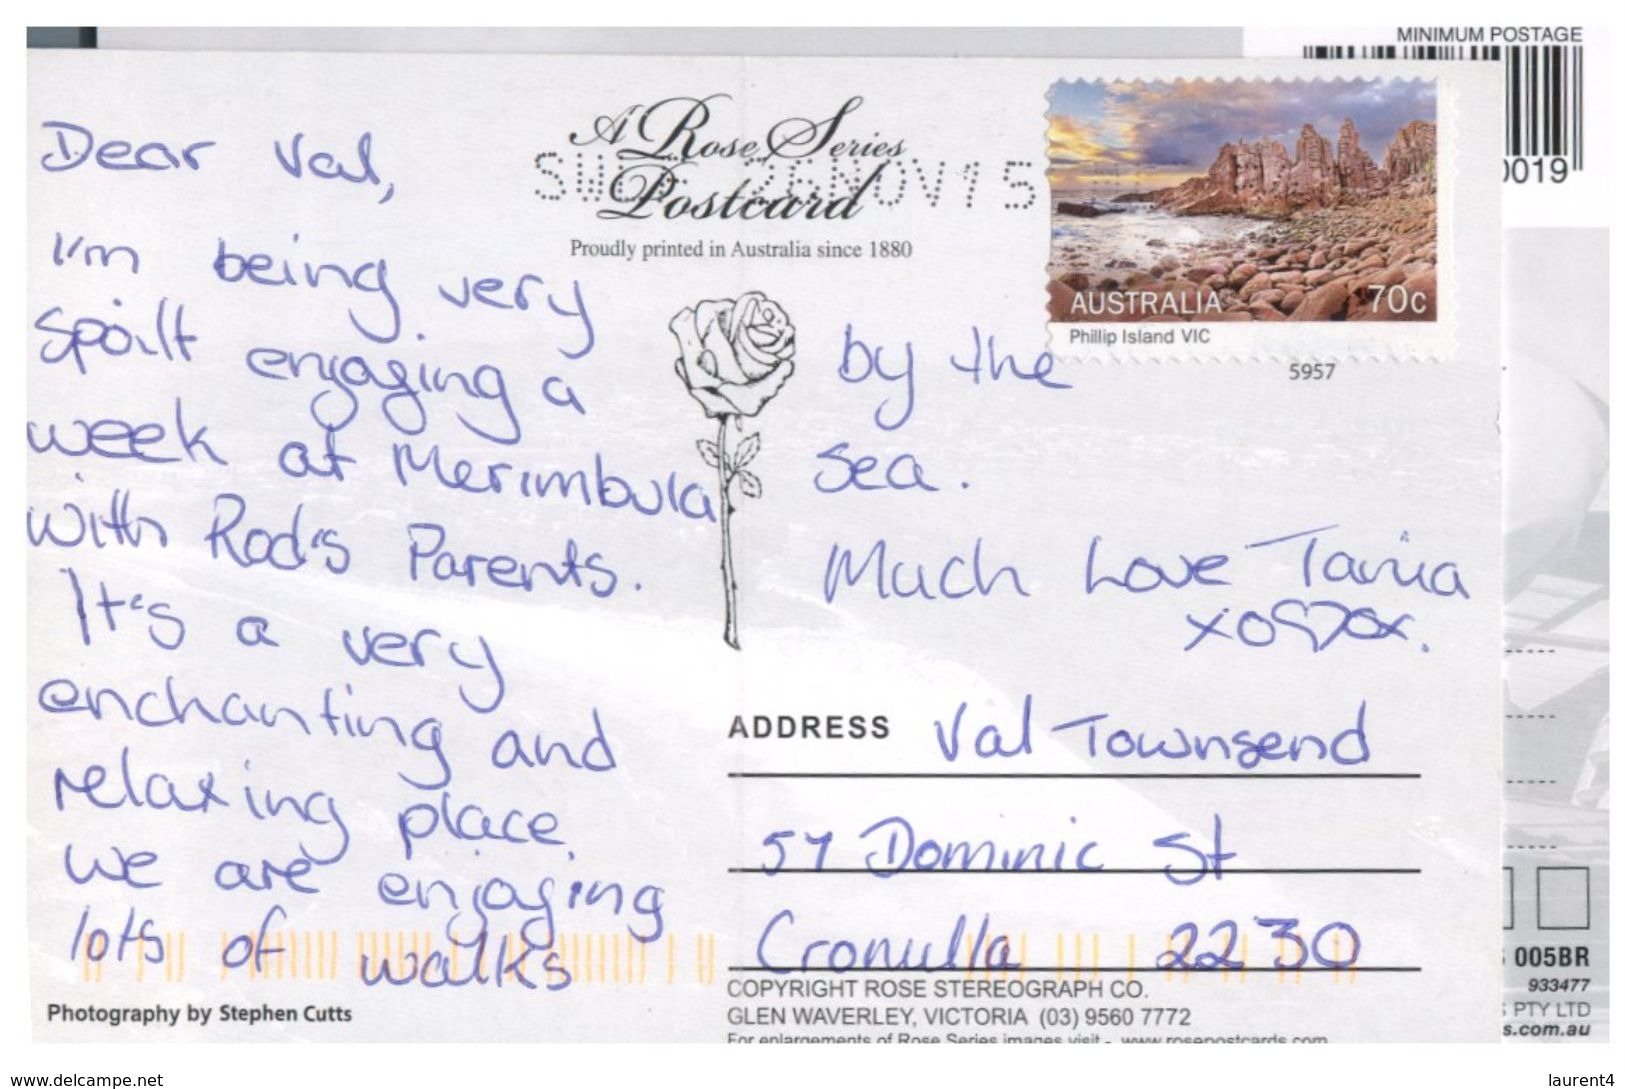 MINIMUM POSTAGE
0019
A Rose Series
Postcard
Proudly printed in Australia since 1880
26NOV15
AUSTRALIA 70c
Phillip Island VIC
5957
Dear Val,
I'm being very
spoilt enjoying a
week at Merimbula
with Rod's Parents.
It's a very
enchanting and
relaxing place.
we are enjoying
lots of walks
by the
sea.
Much Love Tania
ADDRESS Val Townsend
57 Dominic St
Cronulla 2230
Photography by Stephen Cutts
COPYRIGHT ROSE STEREOGRAPH CO.
GLEN WAVERLEY, VICTORIA (03) 9560 7772
For enlargements of Rose Series images visit - www.rosepostcards.com
005BR
933477
PTY LTD
s.com.au
www.delcampe.net
laurent4